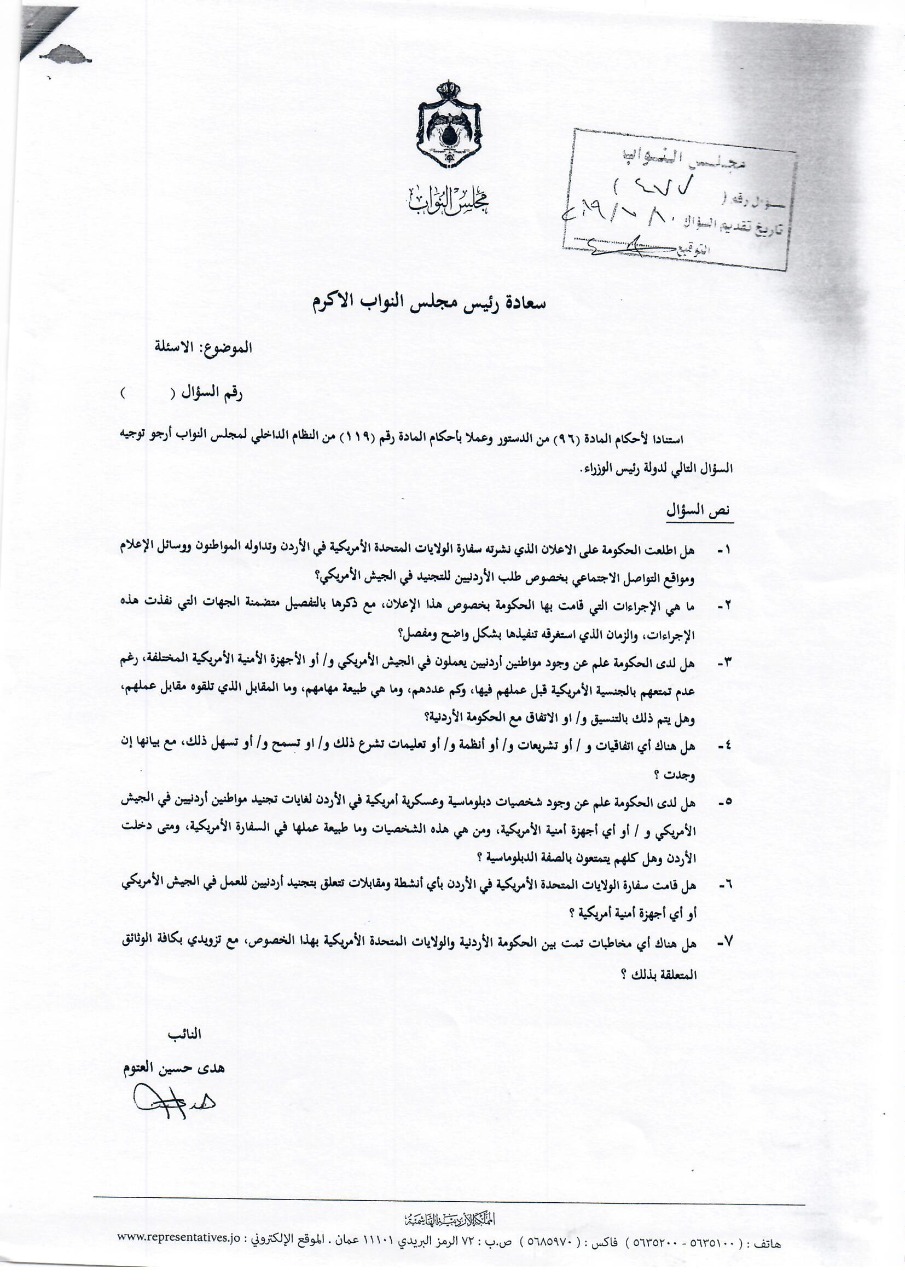 مجلس النواب
مجلس النواب
سؤال رقم ( ٤٧٧ )
تاريخ تقديم السؤال
التوقيع
سعادة رئيس مجلس النواب الاكرم
الموضوع: الاسئلة
رقم السؤال ( )
استنادا لأحكام المادة (٩٦) من الدستور وعملا بأحكام المادة رقم (١١٩) من النظام الداخلي لمجلس النواب أرجو توجيه
السؤال التالي لدولة رئيس الوزراء.
نص السؤال
١- هل اطلعت الحكومة على الاعلان الذي نشرته سفارة الولايات المتحدة الأمريكية في الأردن وتداوله المواطنون ووسائل الإعلام
ومواقع التواصل الاجتماعي بخصوص طلب الأردنيين للتجنيد في الجيش الأمريكي؟
٢- ما هي الإجراءات التي قامت بها الحكومة بخصوص هذا الإعلان، مع ذكرها بالتفصيل متضمنة الجهات التي نفذت هذه
الإجراءات، والزمان الذي استغرقه تنفيذها بشكل واضح ومفصل؟
٣- هل لدى الحكومة علم عن وجود مواطنين أردنيين يعملون في الجيش الأمريكي و/ أو الأجهزة الأمنية الأمريكية المختلفة، رغم
عدم تمتعهم بالجنسية الأمريكية قبل عملهم فيها، وكم عددهم، وما هي طبيعة مهامهم، وما المقابل الذي تلقوه مقابل عملهم،
وهل يتم ذلك بالتنسيق و/ او الاتفاق مع الحكومة الأردنية؟
٤- هل هناك أي اتفاقيات و / أو تشريعات و/ أو أنظمة و/ أو تعليمات تشرع ذلك و/ او تسمح و/ أو تسهل ذلك، مع بيانها إن
وجدت ؟
٥- هل لدى الحكومة علم عن وجود شخصيات دبلوماسية وعسكرية أمريكية في الأردن لغايات تجنيد مواطنين أردنيين في الجيش
الأمريكي و / أو أي أجهزة أمنية الأمريكية، ومن هي هذه الشخصيات وما طبيعة عملها في السفارة الأمريكية، ومتى دخلت
الأردن وهل كلهم يتمتعون بالصفة الدبلوماسية ؟
٦- هل قامت سفارة الولايات المتحدة الأمريكية في الأردن بأي أنشطة ومقابلات تتعلق بتجنيد أردنيين للعمل في الجيش الأمريكي
أو أي أجهزة أمنية أمريكية ؟
٧- هل هناك أي مخاطبات تمت بين الحكومة الأردنية والولايات المتحدة الأمريكية بهذا الخصوص، مع تزويدي بكافة الوثائق
المتعلقة بذلك ؟
النائب
هدى حسين العتوم
المملكة الأردنية الهاشمية
هاتف : ( ٥٦٣٥١٠٠ - ٥٦٣٥٢٠٠ ) فاكس : ( ٥٦٨٥٩٧٠ ) ص.ب : ٧٢ الرمز البريدي ١١١٠١ عمان . الموقع الإلكتروني : www.representatives.jo